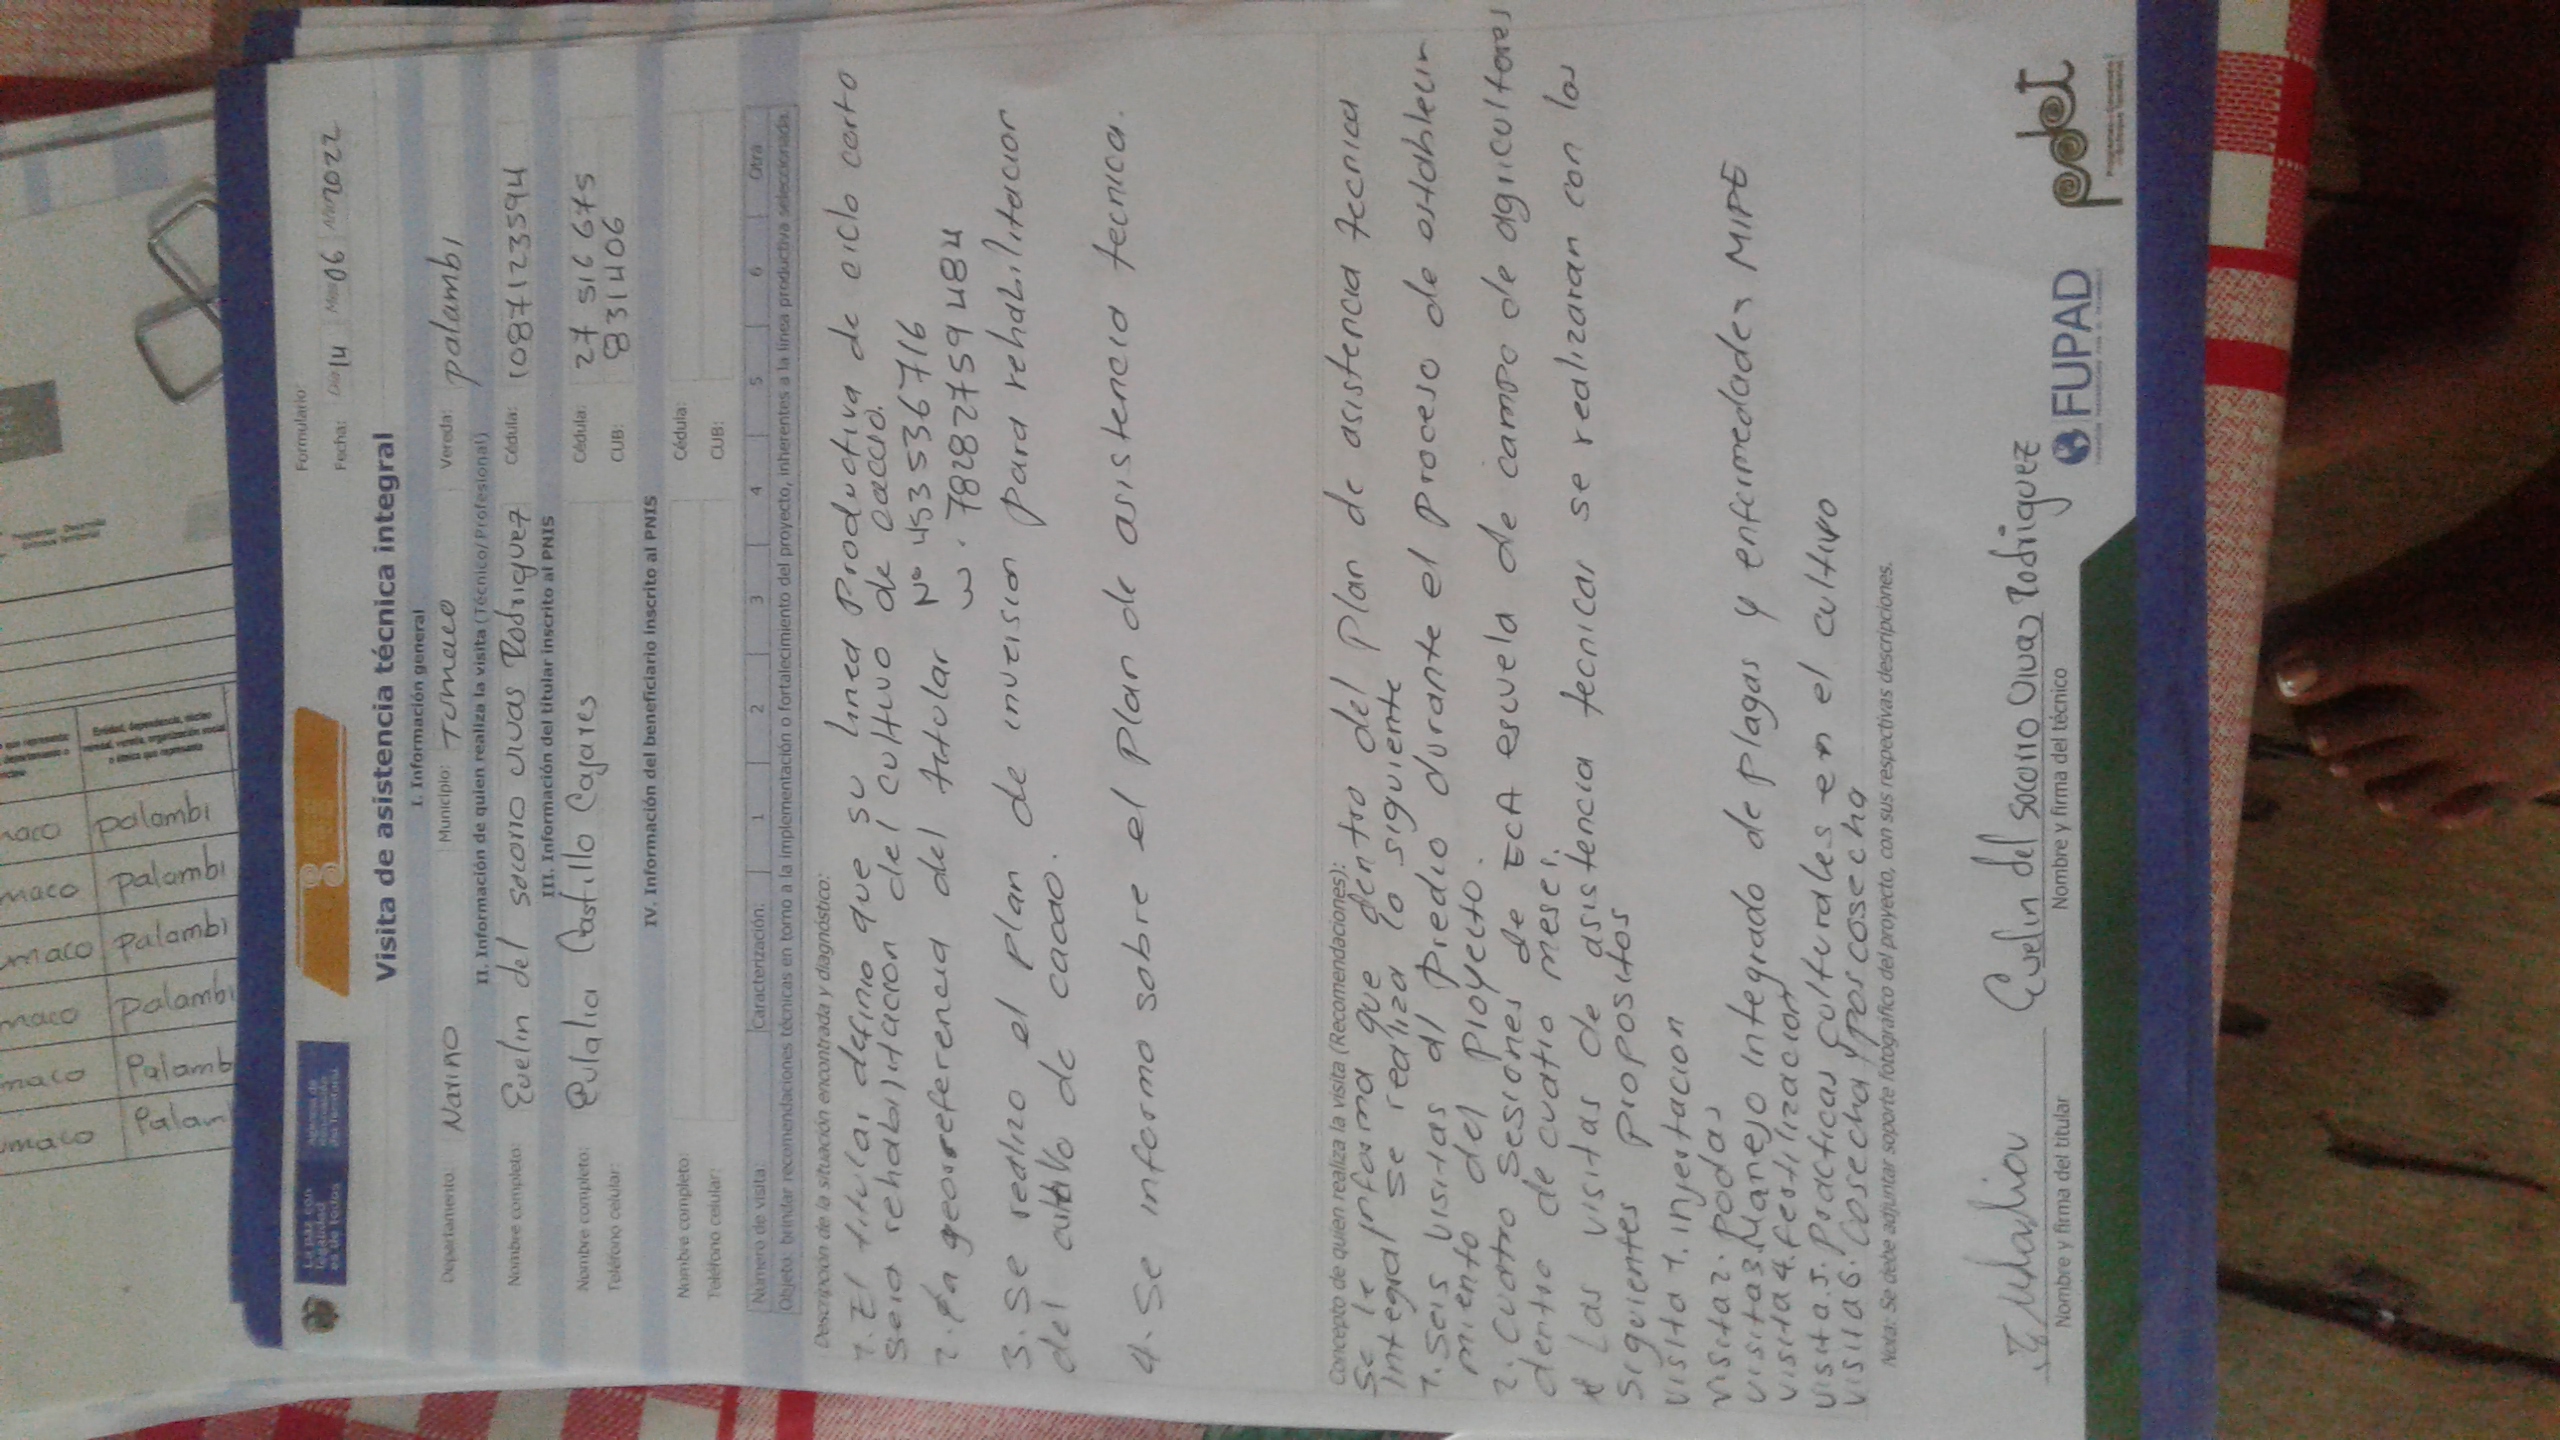 Formulario:
Fecha: Día 14 Mes 06 Año 2022
Visita de asistencia técnica integral
I. Información general
Departamento: Nariño Municipio: Tumaco Vereda: palambi
II. Información de quien realiza la visita (Técnico/Profesional)
Nombre completo: Evelin del socorro vivas Rodriguez Cédula: 1087123594
III. Información del titular inscrito al PNIS
Nombre completo: Eulalia Castillo Cajares Cédula: 27516675
Teléfono celular: CUB: 831406
IV. Información del beneficiario inscrito al PNIS
Nombre completo: Cédula:
Teléfono celular: CUB:
Número de visita: Caracterización: 1 2 3 4 5 6 Otra
Objeto: brindar recomendaciones técnicas en torno a la implementación o fortalecimiento del proyecto, inherentes a la línea productiva seleccionada.
Descripción de la situación encontrada y diagnóstico:
1. El titular definio que su linea Productiva de ciclo corto
Seria rehabilitacion del cultivo de cacao.
2. La georeferencia del titular N° 453536716
W. 78282759484
3. Se realizo el plan de inversion para rehabilitacion
del cultivo de cacao.
4. Se informo sobre el Plan de asistencia tecnica.
Concepto de quien realiza la visita (Recomendaciones):
Se le informa que dentro del Plan de asistencia tecnica
integral se realiza lo siguiente
1. Seis visitas al Predio durante el Proceso de establecir
miento del Proyecto.
2. Cuatro Sesiones de ECA escuela de campo de agricultores
dentro de cuatro meses.
Las visitas de asistencia tecnicas se realizaran con los
Siguientes Propositos
visita 1. injertacion
visita 2. Podas
visita 3. Manejo integrado de Plagas y enfermedades MIPE
visita 4. fertilizacion
visita 5. Practicas culturales en el cultivo
visita 6. Cosecha y poscosecha
Nota: Se debe adjuntar soporte fotográfico del proyecto, con sus respectivas descripciones.
Evelin del socorro vivas Rodriguez
Nombre y firma del titular Nombre y firma del técnico
FUPAD pdet
La paz con legalidad es de todos
maco palambi
maco palambi
maco palambi
maco palambi
maco Palamb
maco Palam